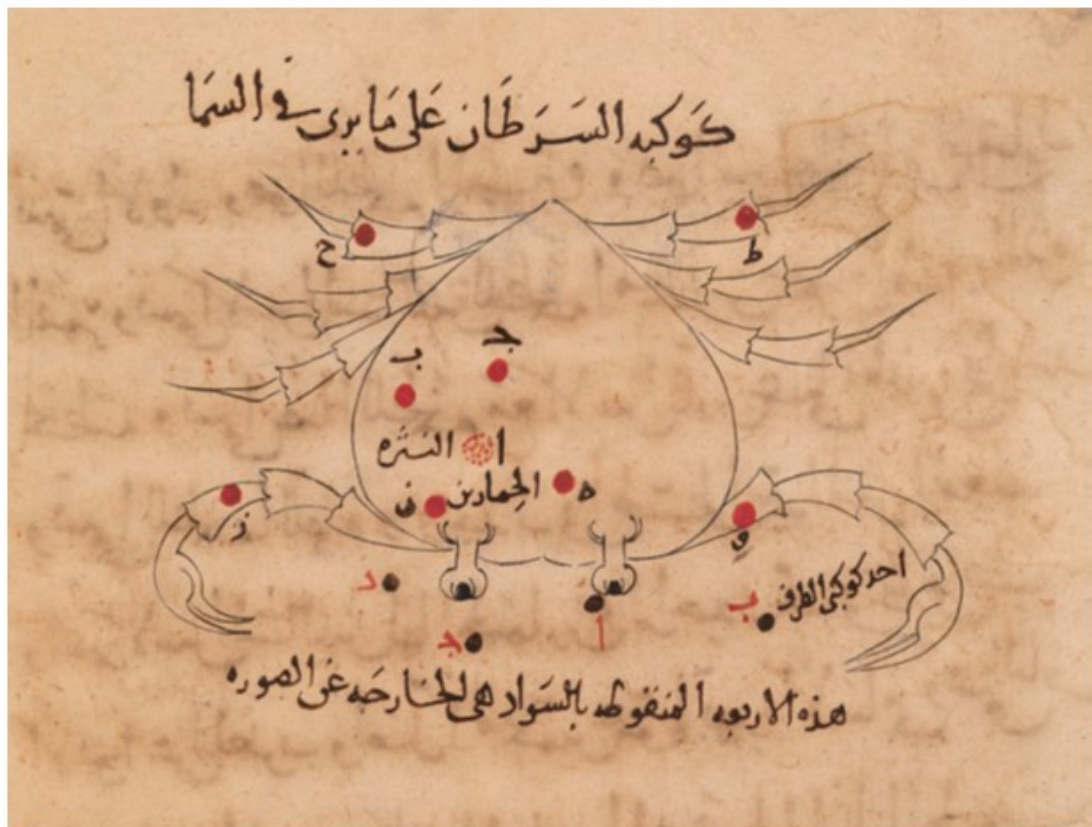 كَوكبه السَرَطَان عَلى مَا يرى فى السمَا
ط
ح
جـ
ب
ا النثره
ه الحمارين
ز
و
احد كوكبى الطرف
ب
د
ا
هذه الاربعه المنقوطه بالسَواد هى الخارجَه عَن الصوره